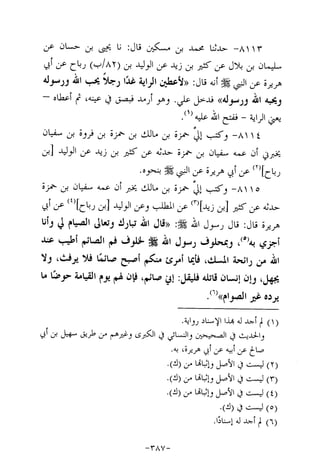 ٨١١٣- حدثنا محمد بن مسكين قال: نا يحيى بن حسان عن
سليمان بن بلال عن كثير بن زيد عن الوليد بن (٨٢/ب) رباح عن أبي
هريرة عن النبي ﷺ أنه قال: «لأعطين الراية غدًا رجلاً يحب الله ورسوله
ويحبه الله ورسوله» فدخل علي. وهو أرمد فبصق في عينه، ثم أعطاه –
يعني الراية – ففتح الله عليه (١).
٨١١٤- وكتب إليّ حمزة بن مالك بن حمزة بن فروة بن سفيان
يخبرني أن عمه سفيان بن حمزة حدثه عن كثير بن زيد عن الوليد [بن
رباح](٢) عن أبي هريرة عن النبي ﷺ بنحوه.
٨١١٥- وكتب إليّ حمزة بن مالك يخبر أن عمه سفيان بن حمزة
حدثه عن كثير [بن زيد](٣) عن المطلب وعن الوليد [بن رباح](٤) عن أبي
هريرة قال: قال رسول الله ﷺ: «قال الله تبارك وتعالى الصيام لي وأنا
أجزي به(٥)، وبمحلوف رسول الله ﷺ لخلوف فم الصائم أطيب عند
الله من رائحة المسك، فأيما أمرئ منكم أصبح صائمًا فلا يرفث، ولا
يجهل، وإن إنسان قاتله فليقل: إني صائم، فإن لهم يوم القيامة حوضًا ما
يرده غير الصوام»(٦).
(١) لم أجد له بهذا الإسناد رواية.
والحديث في الصحيحين والنسائي في الكبرى وغيرهم من طريق سهيل بن أبي
صالح عن أبيه عن أبي هريرة، به.
(٢) ليست في الأصل وإثباتها من (ك).
(٣) ليست في الأصل وإثباتها من (ك).
(٤) ليست في الأصل وإثباتها من (ك).
(٥) ليست في (ك).
(٦) لم أجد له إسنادًا.
-٣٨٧-